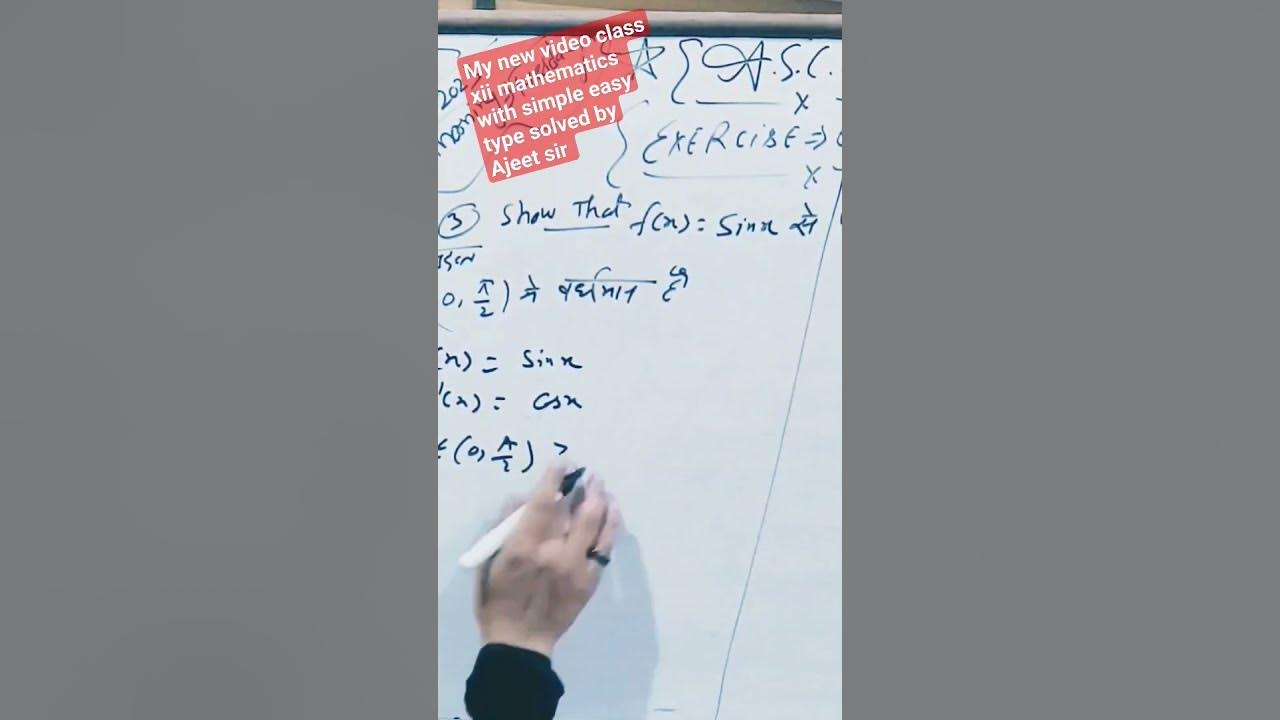 My new video class
xii mathematics
with simple easy
type solved by
Ajeet sir
A.S.C.
x
EXERCISE ⇒
x
③ Show That f(x) = Sinx
0, π/2) में वर्धमान है
(x) = Sinx
'(x) = Cosx
(0, π/2) >